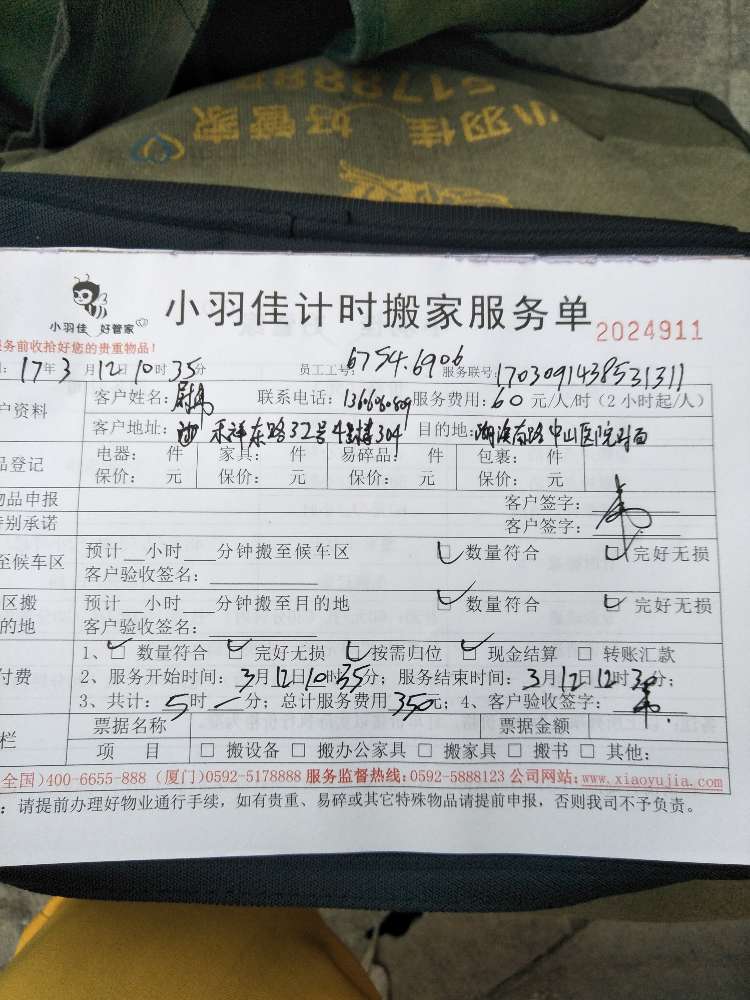 小羽佳 好管家
5178888
小羽佳 好管家
小羽佳计时搬家服务单 2024911
务前收拾好您的贵重物品!
17年3月12日10时35分 员工工号:6754.6906 服务联号:1703091438531311
户资料 客户姓名: 联系电话: 服务费用:60元/人/时(2小时起/人)
客户地址: 禾祥东路32号 304 目的地:湖滨南路中山医院对面
品登记 电器: 件 家具: 件 易碎品: 件 包裹: 件
保价: 元 保价: 元 保价: 元 保价: 元
物品申报 客户签字:
特别承诺 客户签字:
至候车区 预计__小时___分钟搬至候车区 □数量符合 □完好无损
客户验收签名:
区搬 预计__小时___分钟搬至目的地 □数量符合 □完好无损
的地 客户验收签名:
付费 1、□数量符合 □完好无损 □按需归位 □现金结算 □转账汇款
2、服务开始时间:3月12日10时35分;服务结束时间:3月12日12时35分;
3、共计:5时一分;总计服务费用350元;4、客户验收签字:
栏 票据名称 票据金额
项 目 □搬设备 □搬办公家具 □搬家具 □搬书 □其他:
全国)400-6655-888 (厦门)0592-5178888 服务监督热线:0592-5888123 公司网站:www.xiaoyujia.com
:请提前办理好物业通行手续,如有贵重、易碎或其它特殊物品请提前申报,否则我司不予负责。